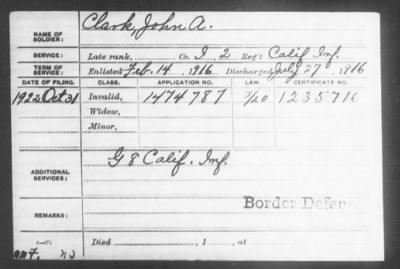 NAME OF SOLDIER: Clark, John A.
SERVICE: Late rank, Co. I, 2 Reg't Calif. Inf.
TERM OF SERVICE: Enlisted Feb. 14, 1916 Discharged July 27, 1916
DATE OF FILING. CLASS. APPLICATION NO. LAW. CERTIFICATE NO.
1922 Oct 31 Invalid, 1474787 1235716
Widow,
Minor,
ADDITIONAL SERVICES: G 8 Calif. Inf.
Border Defen
REMARKS:
Died , 1 , at